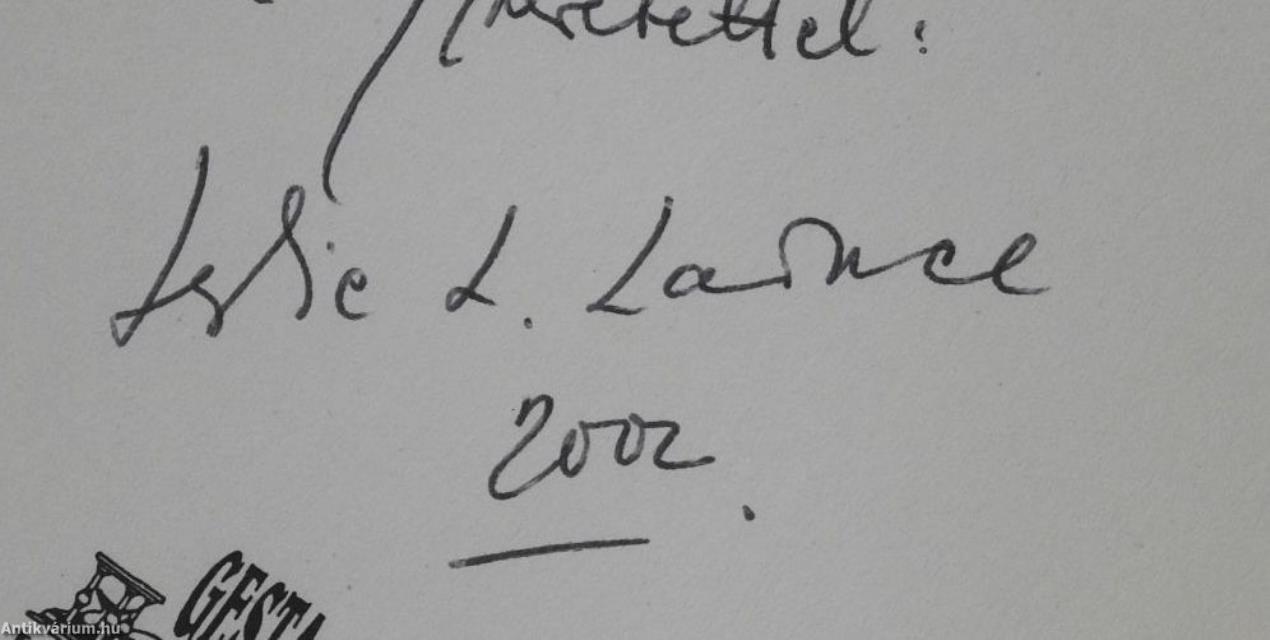 szeretettel:
Leslie L. Lawrence
2002.
GESTA
Antikvárium.hu